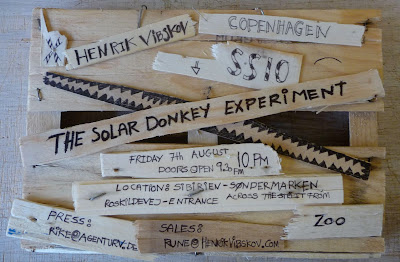 HENRIK VIBSKOV
COPENHAGEN
SS10
THE SOLAR DONKEY EXPERIMENT
FRIDAY 7TH AUGUST 10 PM
DOORS OPEN 9.30 PM
LOCATION: SIBIRIEN - SØNDERMARKEN
ROSKILDEVEJ - ENTRANCE ACROSS THE STREET FROM
ZOO
PRESS:
RIKE@AGENTURV.DE
SALES:
RUNE@HENRIKVIBSKOV.COM